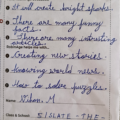 It will create bright sparks.
There are many funny
facts.
There are many intresting
Creating new stories.
Knowing world news.
How to solve puzzles.
Name:
Class & School: